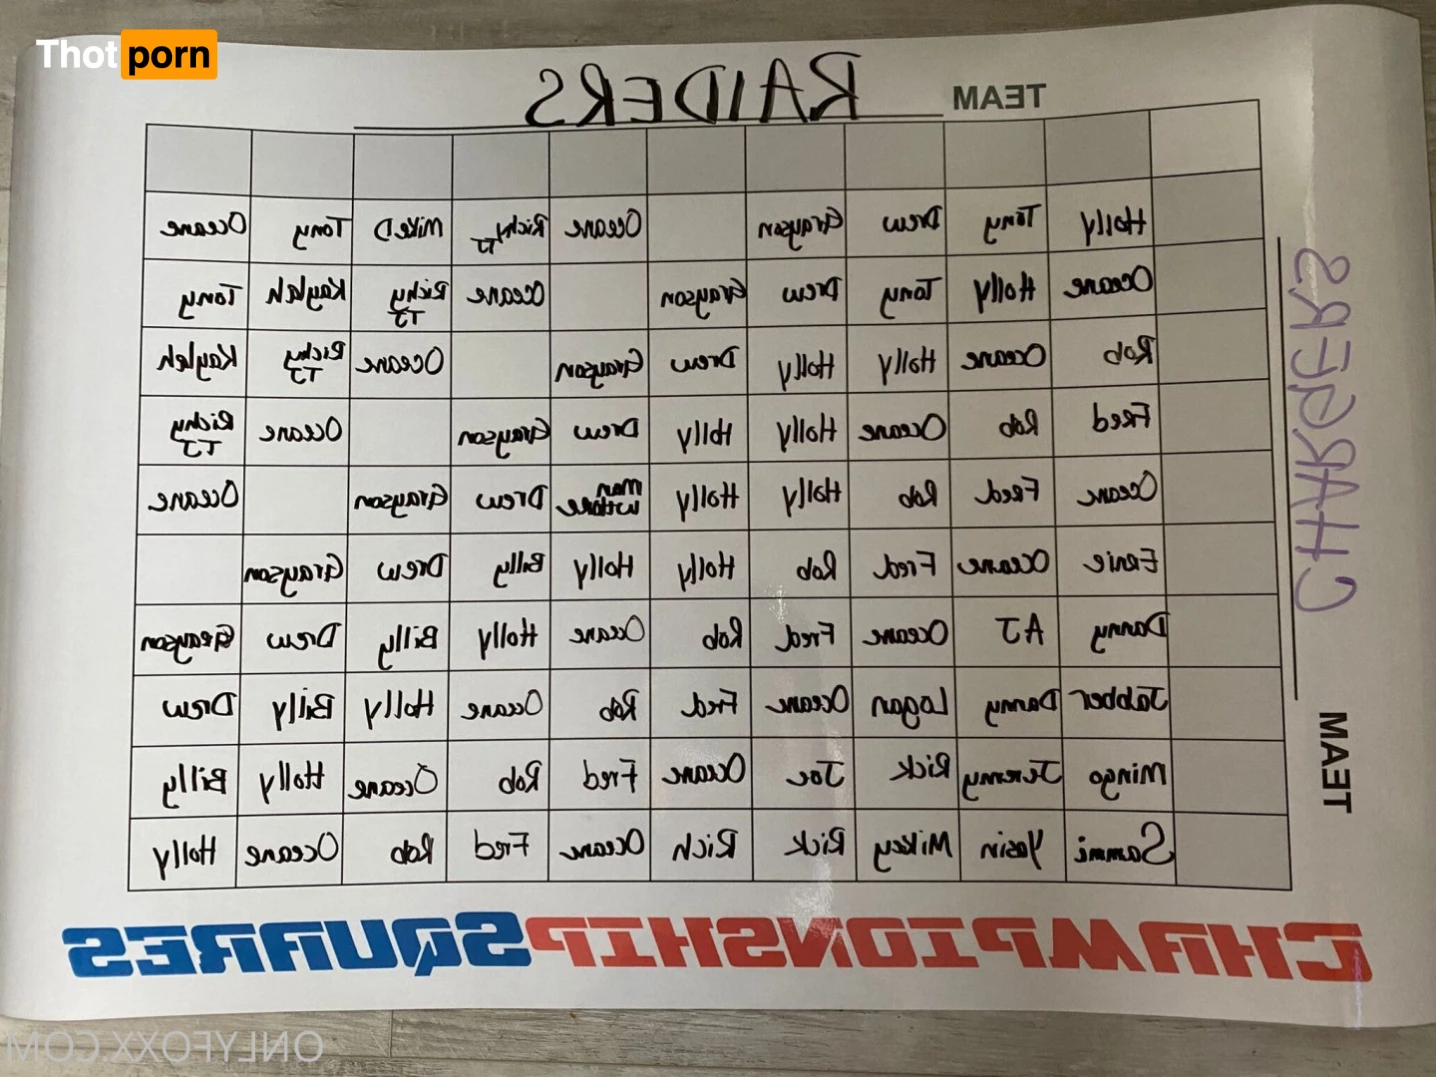 Thot porn
TEAM RAIDERS
Oceane Tony Mike D Richy TJ Oceane Grayson Drew Tony Holly
Tony Kayleh Richy TJ Oceane Grayson Drew Tony Holly Oceane
Kayleh Richy TJ Oceane Grayson Drew Holly Holly Oceane Rob
Richy TJ Oceane Grayson Drew Holly Holly Oceane Rob Fred
Oceane Grayson Drew Man whore Holly Holly Rob Fred Oceane
Grayson Drew Billy Holly Holly Rob Fred Oceane Ernie
Grayson Drew Billy Holly Oceane Rob Fred Oceane AJ Danny
Drew Billy Holly Oceane Rob Fred Oceane Logan Danny Jabber
Billy Holly Oceane Rob Fred Oceane Joe Rick Jeremy Mingo
Holly Oceane Rob Fred Oceane Rich Rick Mikey Yasin Sammi
TEAM CHARGERS
CHAMPIONSHIP SQUARES
ONLYFOXX.COM